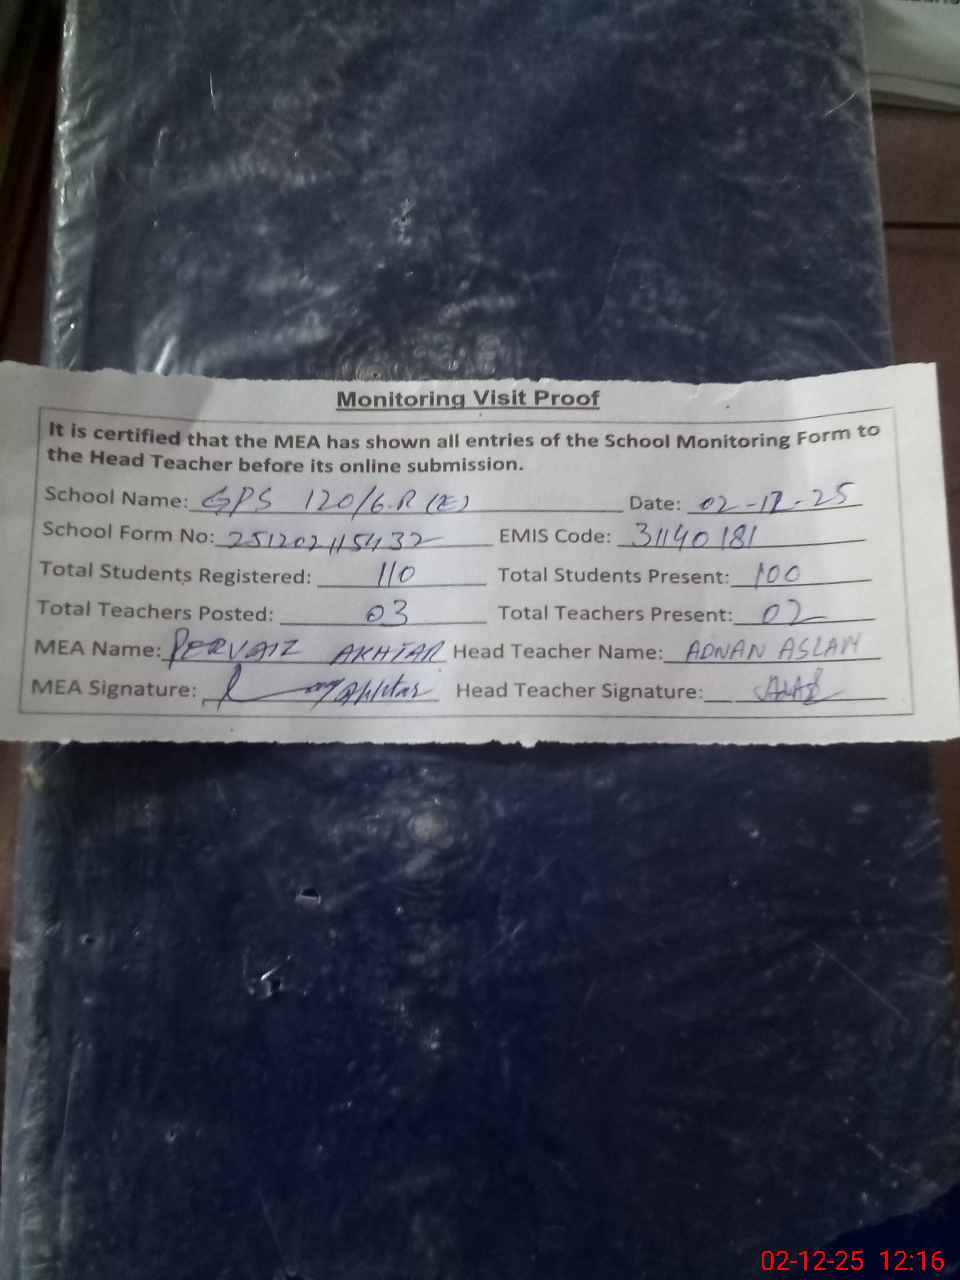 Monitoring Visit Proof
It is certified that the MEA has shown all entries of the School Monitoring Form to
the Head Teacher before its online submission.
School Name: GPS 120/6.R (E) Date: 02-12-25
School Form No: 251202115432 EMIS Code: 31140181
Total Students Registered: 110 Total Students Present: 100
Total Teachers Posted: 03 Total Teachers Present: 02
MEA Name: PERVAIZ AKHTAR Head Teacher Name: ADNAN ASLAM
MEA Signature: Head Teacher Signature:
02-12-25 12:16